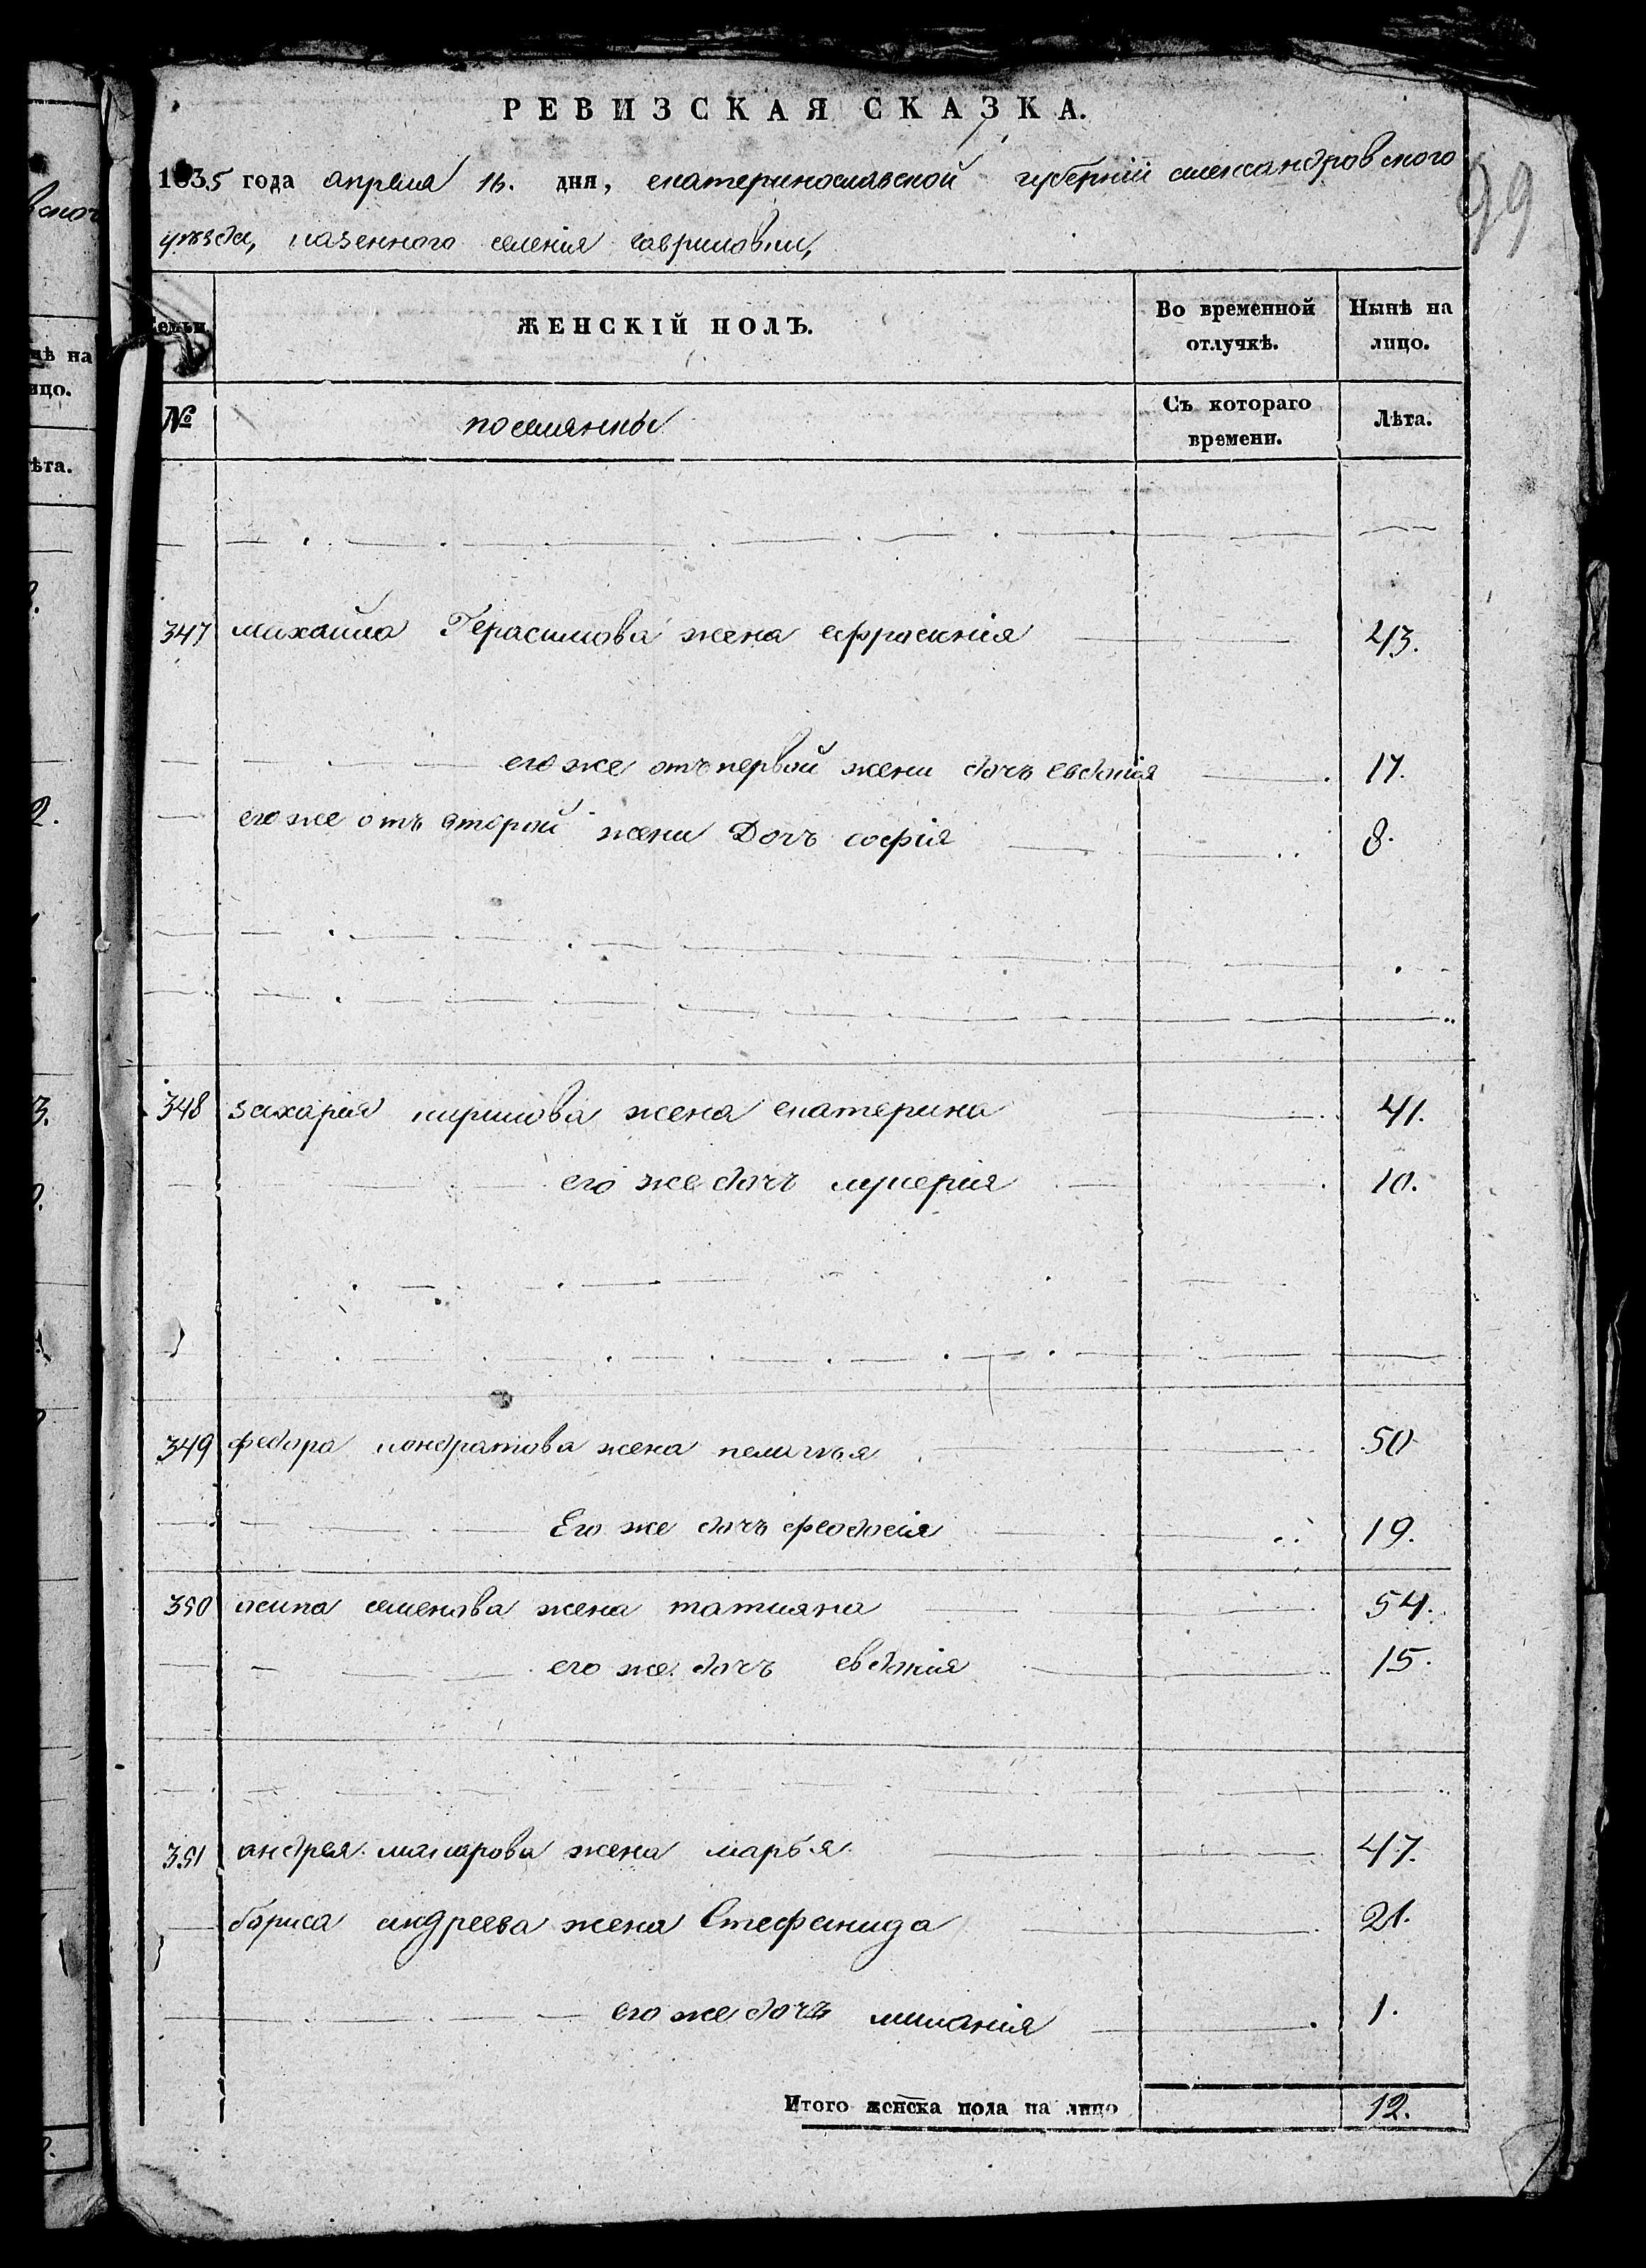 РЕВИЗСКАЯ СКАЗКА.
1835 года апреля 16. дня, екатеринославской губерніи александровского
уезда, казенного селенія гавриловки,
99
Семьи. ЖЕНСКІЙ ПОЛЪ. Во временной отлучкѣ. Нынѣ на лицо.
№ поселянки Съ котораго времени. Лѣта.
347 михайла Герасимова жена ефросинія 43.
его же отъ первой жени дочъ евдокія 17.
его же отъ второй жени Дочъ софія 8.
348 захарія кирилова жена екатерина 41.
его же дочъ лукерія 10.
349 федора кондратова жена пелагѣя 50
Его же дочъ феодосія 19.
350 осипа семенова жена татияна 54.
его же дочъ евдокія 15.
351 андрея макарова жена марья 47.
бориса андреева жена Стефанида 21.
его же дочъ миланія 1.
Итого женска пола на лицо 12.